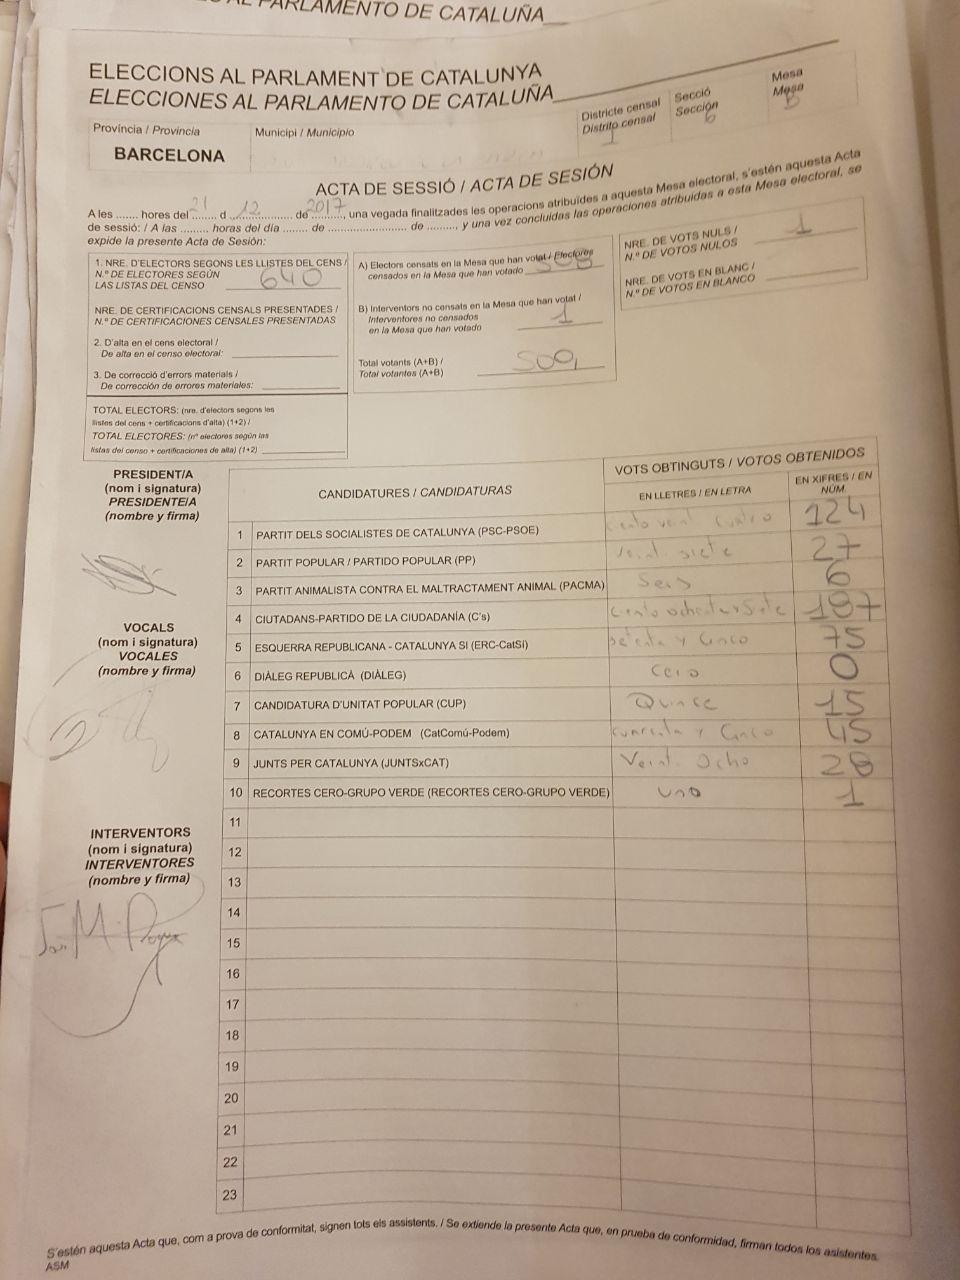 PARLAMENTO DE CATALUÑA
ELECCIONS AL PARLAMENT DE CATALUNYA
ELECCIONES AL PARLAMENTO DE CATALUÑA
Província / Provincia
BARCELONA
Municipi / Municipio
Districte censal
Distrito censal
1
Secció
Sección
6
Mesa
Mesa
B
ACTA DE SESSIÓ / ACTA DE SESIÓN
A les ....... hores del 21 d 12 de 2017, una vegada finalitzades les operacions atribuïdes a aquesta Mesa electoral, s'estén aquesta Acta
de sessió: / A las ......... horas del día ....... de ........................... de ........., y una vez concluidas las operaciones atribuidas a esta Mesa electoral, se
expide la presente Acta de Sesión:
1. NRE. D'ELECTORS SEGONS LES LLISTES DEL CENS /
N.º DE ELECTORES SEGÚN
LAS LISTAS DEL CENSO 640
NRE. DE CERTIFICACIONS CENSALS PRESENTADES /
N.º DE CERTIFICACIONES CENSALES PRESENTADAS
2. D'alta en el cens electoral /
De alta en el censo electoral:
3. De correcció d'errors materials /
De corrección de errores materiales:
TOTAL ELECTORS: (nre. d'electors segons les
llistes del cens + certificacions d'alta) (1+2) /
TOTAL ELECTORES: (nº electores según las
listas del censo + certificaciones de alta) (1+2)
A) Electors censats en la Mesa que han votat / Electores
censados en la Mesa que han votado 508
B) Interventors no censats en la Mesa que han votat /
Interventores no censados
en la Mesa que han votado 1
Total votants (A+B) /
Total votantes (A+B) 509
NRE. DE VOTS NULS /
N.º DE VOTOS NULOS 1
NRE. DE VOTS EN BLANC /
N.º DE VOTOS EN BLANCO
PRESIDENT/A
(nom i signatura)
PRESIDENTE/A
(nombre y firma)
VOCALS
(nom i signatura)
VOCALES
(nombre y firma)
INTERVENTORS
(nom i signatura)
INTERVENTORES
(nombre y firma)
CANDIDATURES / CANDIDATURAS
VOTS OBTINGUTS / VOTOS OBTENIDOS
EN LLETRES / EN LETRA
EN XIFRES / EN
NÚM.
1 PARTIT DELS SOCIALISTES DE CATALUNYA (PSC-PSOE) Ciento veint cuatro 124
2 PARTIT POPULAR / PARTIDO POPULAR (PP) Veint. siete 27
3 PARTIT ANIMALISTA CONTRA EL MALTRACTAMENT ANIMAL (PACMA) Seis 6
4 CIUTADANS-PARTIDO DE LA CIUDADANÍA (C's) 187
5 ESQUERRA REPUBLICANA - CATALUNYA SI (ERC-CatSí) setenta y Cinco 75
6 DIÀLEG REPUBLICÀ (DIÀLEG) Cero 0
7 CANDIDATURA D'UNITAT POPULAR (CUP) Quince 15
8 CATALUNYA EN COMÚ-PODEM (CatComú-Podem) Cuarenta y Cinco 45
9 JUNTS PER CATALUNYA (JUNTSxCAT) Veint. Ocho 28
10 RECORTES CERO-GRUPO VERDE (RECORTES CERO-GRUPO VERDE) Uno 1
11
12
13
14
15
16
17
18
19
20
21
22
23
S'estén aquesta Acta que, com a prova de conformitat, signen tots els assistents. / Se extiende la presente Acta que, en prueba de conformidad, firman todos los asistentes.
ASM